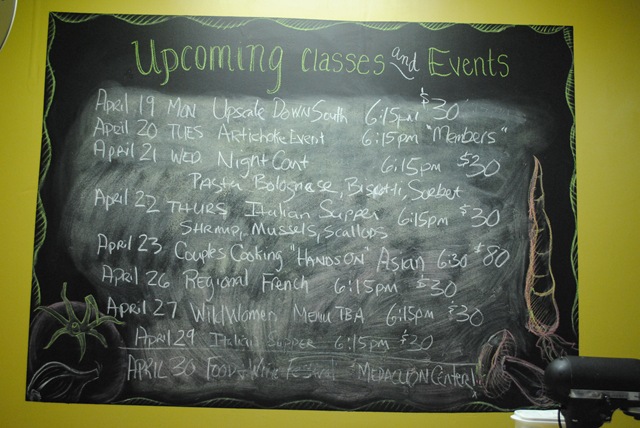 Upcoming Classes and Events
April 19 Mon Upscale Down South 6:15pm $30
April 20 Tues Artichoke Event 6:15pm "Members"
April 21 Wed Night Cont 6:15pm $30
Pasta Bolognase, Biscotti, Sorbet
April 22 Thurs Italian Supper 6:15pm $30
Shrimp, Mussels, Scallops
April 23 Couples Cooking "Hands On" Asian 6:30 $80
April 26 Regional French 6:15pm $30
April 27 Wild Women Menu TBA 6:15pm $30
April 29 Italian Supper 6:15pm $30
April 30 Food & Wine Festival Center